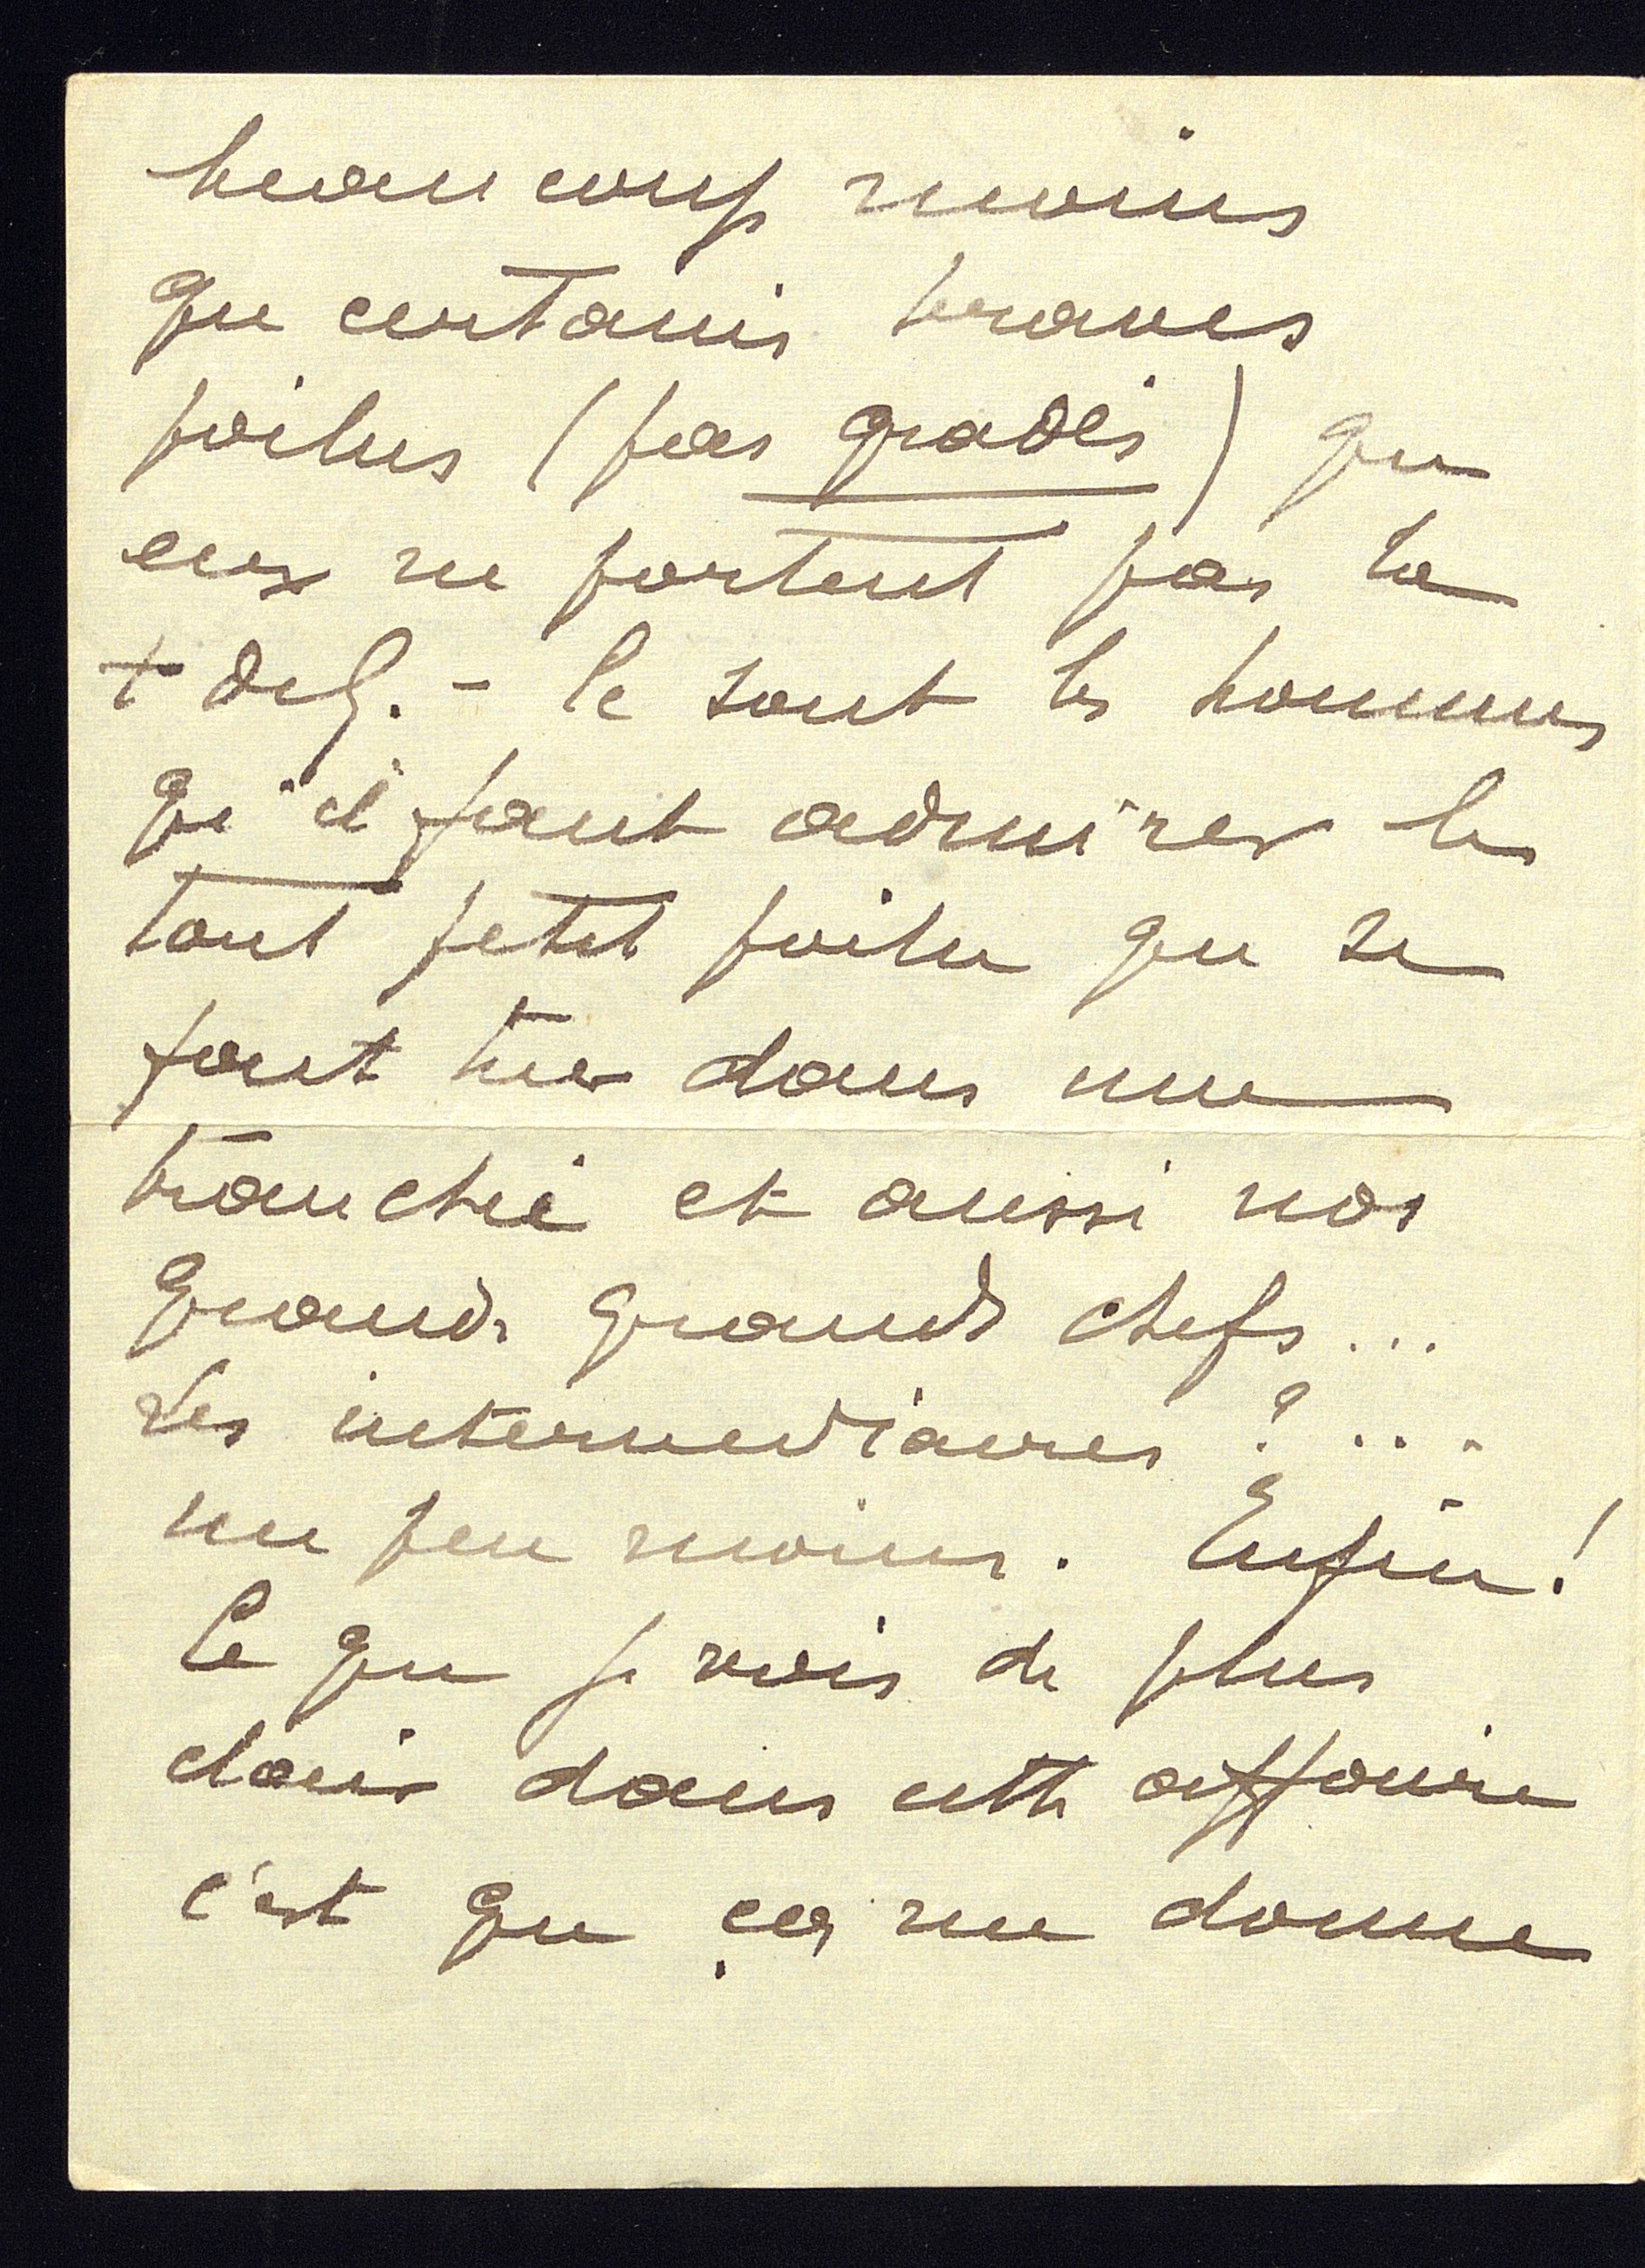 beaucoup moins
que certains braves
poilus (pas gradés) qui
eux ne portent pas la
+ de g. - Ce sont les hommes
qu'il faut admirer les
tout petit poilu qui se
font tuer dans une
tranchée et aussi nos
grands grands chefs...
Les intermediaires ?...
un peu moins. Enfin!
Ce que je vois de plus
clair dans cette affaire
c'est que ça me donne